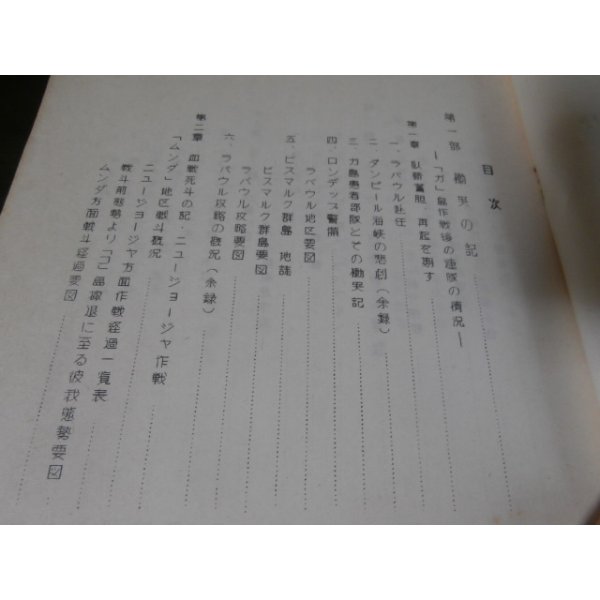 目次
第一部 勵突の記
―「ガ」島作戦後の連隊の情況―
第一章 臥薪嘗胆、再起を期す
一、ラバウル赴任
二、ダンピール海峡の悲劇（余録）
三、ガ島患者部隊との勵突記
四、ロンデップ警備
ラバウル地区要図
五、ビスマルク群島 地誌
ビスマルク群島要図
ラバウル攻略要図
六、ラバウル攻略の概況（余録）
第二章 血戦死斗の記・ニュージョージャ作戦
「ムンダ」地区戦斗概況
ニュージョージャ方面作戦経過一覧表
戦斗前態勢より「コ」島撤退に至る彼我態勢要図
ムンダ方面戦斗経過要図